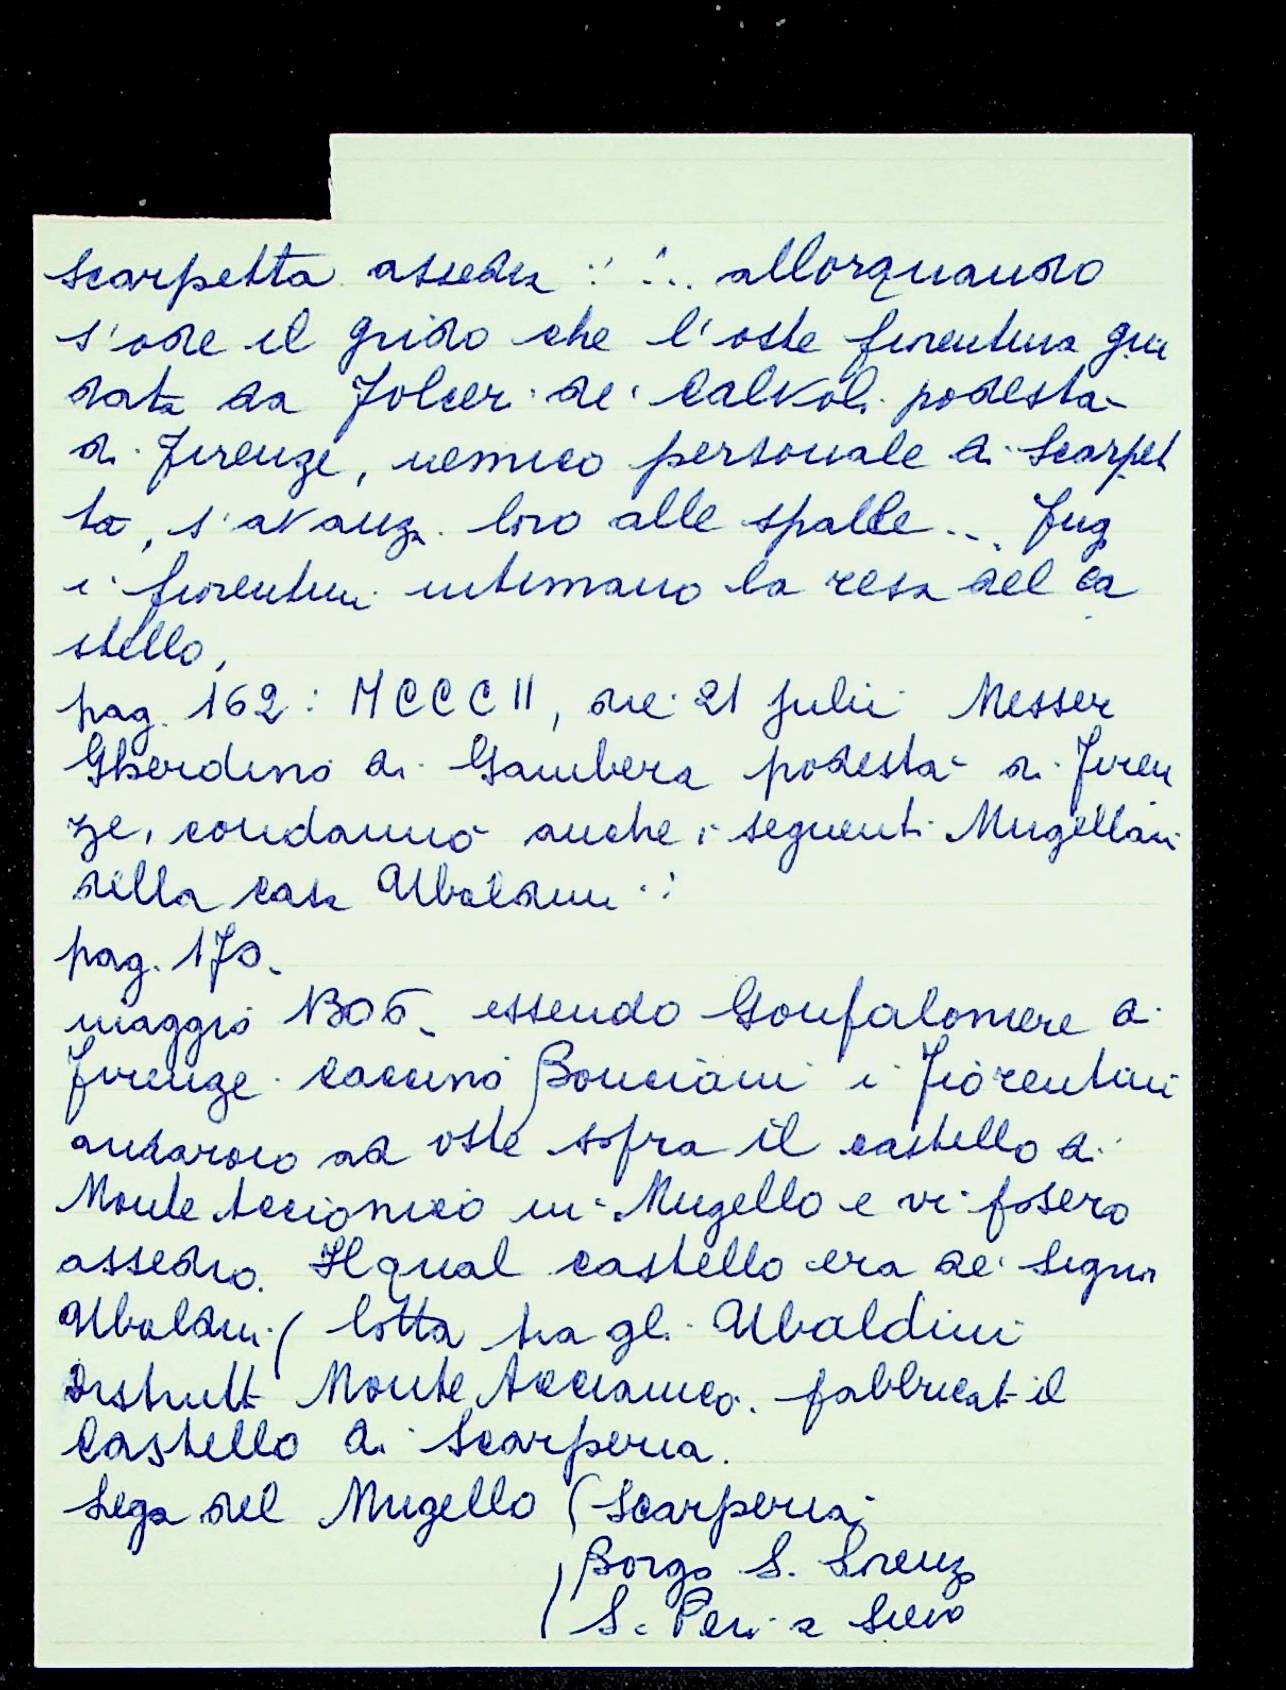 Scarpetta assedia : ... allorquando
s'ode il grido che l'oste fiorentina gui
data da Folcer de' Calvoli podestà
di Firenze, nemico personale di Scarpet
ta, s'avanza loro alle spalle... Fug
i fiorentini intimano la resa del ca
stello,
pag. 162: MCCCII, die 21 julii Messer
Gherdino di Gambera podestà di Firen
ze, condannò anche i seguenti Mugellani
della casa Ubaldini :
pag. 170.
maggio 1306. essendo Gonfaloniere di
Firenze Caccino Bonciani i Fiorentini
andarono ad oste sopra il castello di
Monte Accionico in Mugello e vi posero
assedio. Il qual castello era de' Signori
Ubaldini ( lotta tra gli Ubaldini
Distrutt Monte Accianico. fabbricat il
Castello di Scarperia.
Lega del Mugello ( Scarperia
Borgo S. Lorenzo
( S. Pier a Sieve